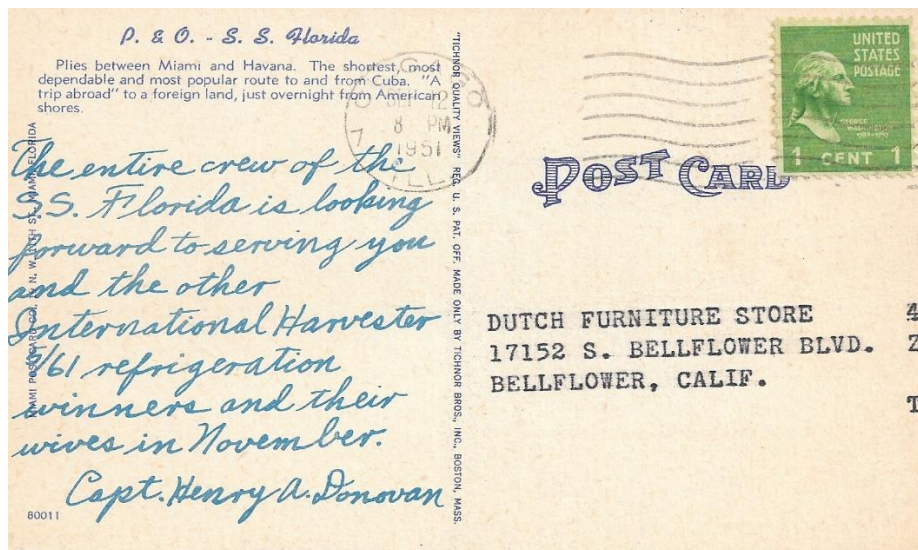 P. & O. - S. S. Florida
Plies between Miami and Havana. The shortest, most
dependable and most popular route to and from Cuba. "A
trip abroad" to a foreign land, just overnight from American
shores.
The entire crew of the
S.S. Florida is looking
forward to serving you
and the other
International Harvester
5/61 refrigeration
winners and their
wives in November.
Capt. Henry A. Donovan
80011
MIAMI POST CARD CO.
MIAMI, FLORIDA
"TICHNOR QUALITY VIEWS" REG. U. S. PAT. OFF. MADE ONLY BY TICHNOR BROS., INC., BOSTON, MASS.
12
8 PM
1951
ILL.
7
UNITED
STATES
POSTAGE
GEORGE
WASHINGTON
1 CENT 1
POST CARD
DUTCH FURNITURE STORE 4
17152 S. BELLFLOWER BLVD. Z
BELLFLOWER, CALIF.
T